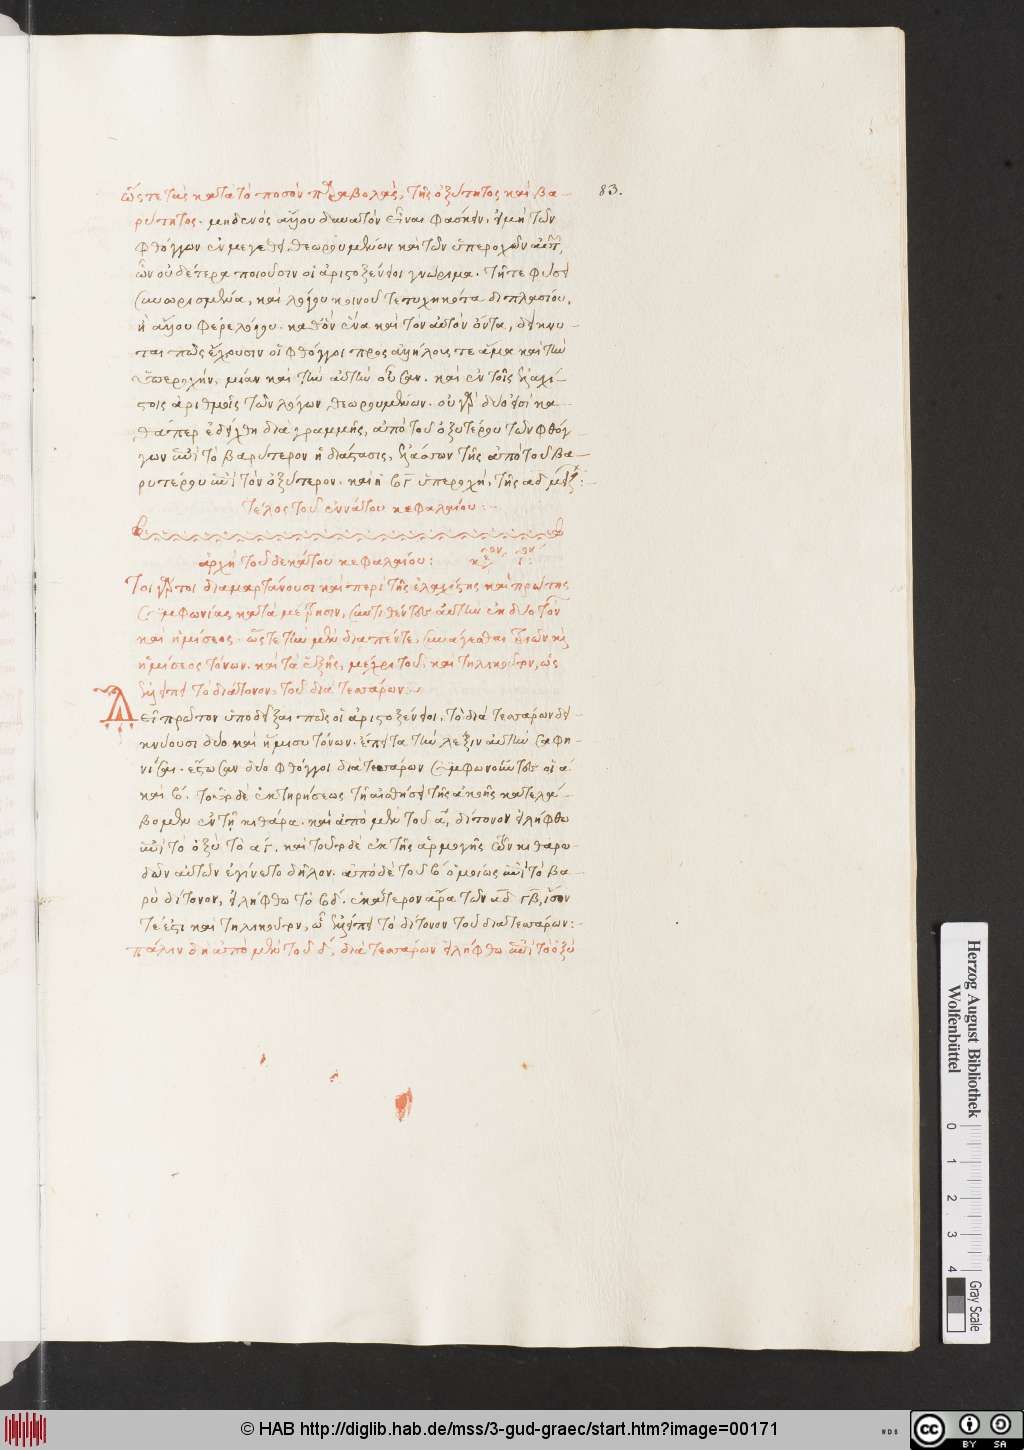 ὥστε τὰς κατὰ τὸ ποσὸν παραβολὰς, τῆς ὀξύτητος καὶ βα- 83.
ρύτητος. μηδενὸς ἄλλου δυνατὸν εἶναι φάσκειν, εἰ μὴ τῶν
φθόγγων ἐν μεγέθει θεωρουμένων καὶ τῶν ὑπεροχῶν αὐτῶν,
ὧν οὐδέτερα ποιοῦσιν οἱ ἀριστοξένειοι γνώριμα. τῆ τε φύσει
συνωρισμένα, καὶ λόγου κοινοῦ τετυχηκότα διπλασίου,
ἢ ἄλλου φέρε λόγου. καθ' ὃν ἕνα καὶ τὸν αὐτὸν ὄντα, δείκνυ-
ται πῶς ἔχουσιν οἱ φθόγγοι πρὸς ἀλλήλους τε ἅμα καὶ τὴν
ὑπεροχὴν, μίαν καὶ τὴν αὐτὴν οὖσαν. καὶ ἐν τοῖς ἐλαχί-
στοις ἀριθμοῖς τῶν λόγων θεωρουμένων. οὐ γὰρ δύο εἰσὶ κα-
θάπερ ἐδείχθη διὰ γραμμῆς, ἀπὸ τοῦ ὀξυτέρου τῶν φθόγ-
γων ἐπὶ τὸ βαρύτερον ἡ διάστασις, ἐλάττων τῆς ἀπὸ τοῦ βα-
ρυτέρου ἐπὶ τὸν ὀξύτερον. καὶ ἡ βγ ὑπεροχὴ, τῆς αδ μείζων:
τέλος τοῦ ἐννάτου κεφαλαίου:
ἀρχὴ τοῦ δεκάτου κεφαλαίου:
Τοι γάρτοι διαμαρτάνουσι καὶ περὶ τῆς ἐλαχίστης καὶ πρώτης
συμφωνίας κατὰ μέτρησιν, συντιθέντες αὐτὴν ἐκ δύο τόνων
καὶ ἡμίσεος. ὥστε τὴν μὲν διὰ πέντε, συνάγεσθαι τριῶν καὶ
ἡμίσεος τόνων. καὶ τὰ ἑξῆς, μέχρι τοῦ, καὶ τηλικοῦτον, ὡς
ἐλλείπει τὸ διάτονον, τοῦ διὰ τεσσάρων.
Δεῖ πρῶτον ὑποδεῖξαι πῶς οἱ ἀριστοξένειοι, τὸ διὰ τεσσάρων δει-
κνύουσι δύο καὶ ἥμισυ τόνων. ἔπειτα τὴν λέξιν αὐτὴν σαφη-
νίσαι. ἔστωσαν δύο φθόγγοι διὰ τεσσάρων συμφωνοῦντες οἱ α
καὶ β. τοῦτο δὲ ἐκ τηρήσεως τῆ αἰσθήσει τῆς ἀκοῆς κατελά-
βομεν ἐν τῆ κιθάρα. καὶ ἀπὸ μὲν τοῦ α, δίτονον εἰλήφθω
ἐπὶ τὸ ὀξὺ τὸ αγ. καὶ τοῦτο δὲ ἐκ τῆς ἁρμογῆς τῶν κιθαρω-
δῶν αὐτῶν ἐγίνετο δῆλον. ἀπὸ δὲ τοῦ β ὁμοίως ἐπὶ τὸ βα-
ρὺ δίτονον, εἰλήφθω τὸ βδ. ἑκάτερον ἄρα τῶν αδ γβ, ἴσον
τέ ἐστι καὶ τηλικοῦτον, ὧ ἐλλείπει τὸ δίτονον τοῦ διὰ τεσσάρων:
πάλιν δὴ ἀπὸ μὲν τοῦ δ, διὰ τεσσάρων εἰλήφθω ἐπὶ τὸ ὀξὺ
Herzog August Bibliothek
Wolfenbüttel
0 1 2 3 4
Gray Scale
© HAB http://diglib.hab.de/mss/3-gud-graec/start.htm?image=00171
WDB
cc BY SA